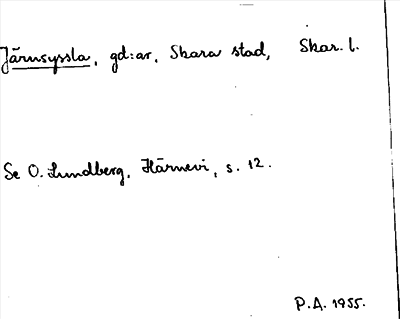 Järnsyssla, gd:ar, Skara stad, Skar. l.
Se O. Lundberg, Härnevi, s. 12.
P.A. 1955.